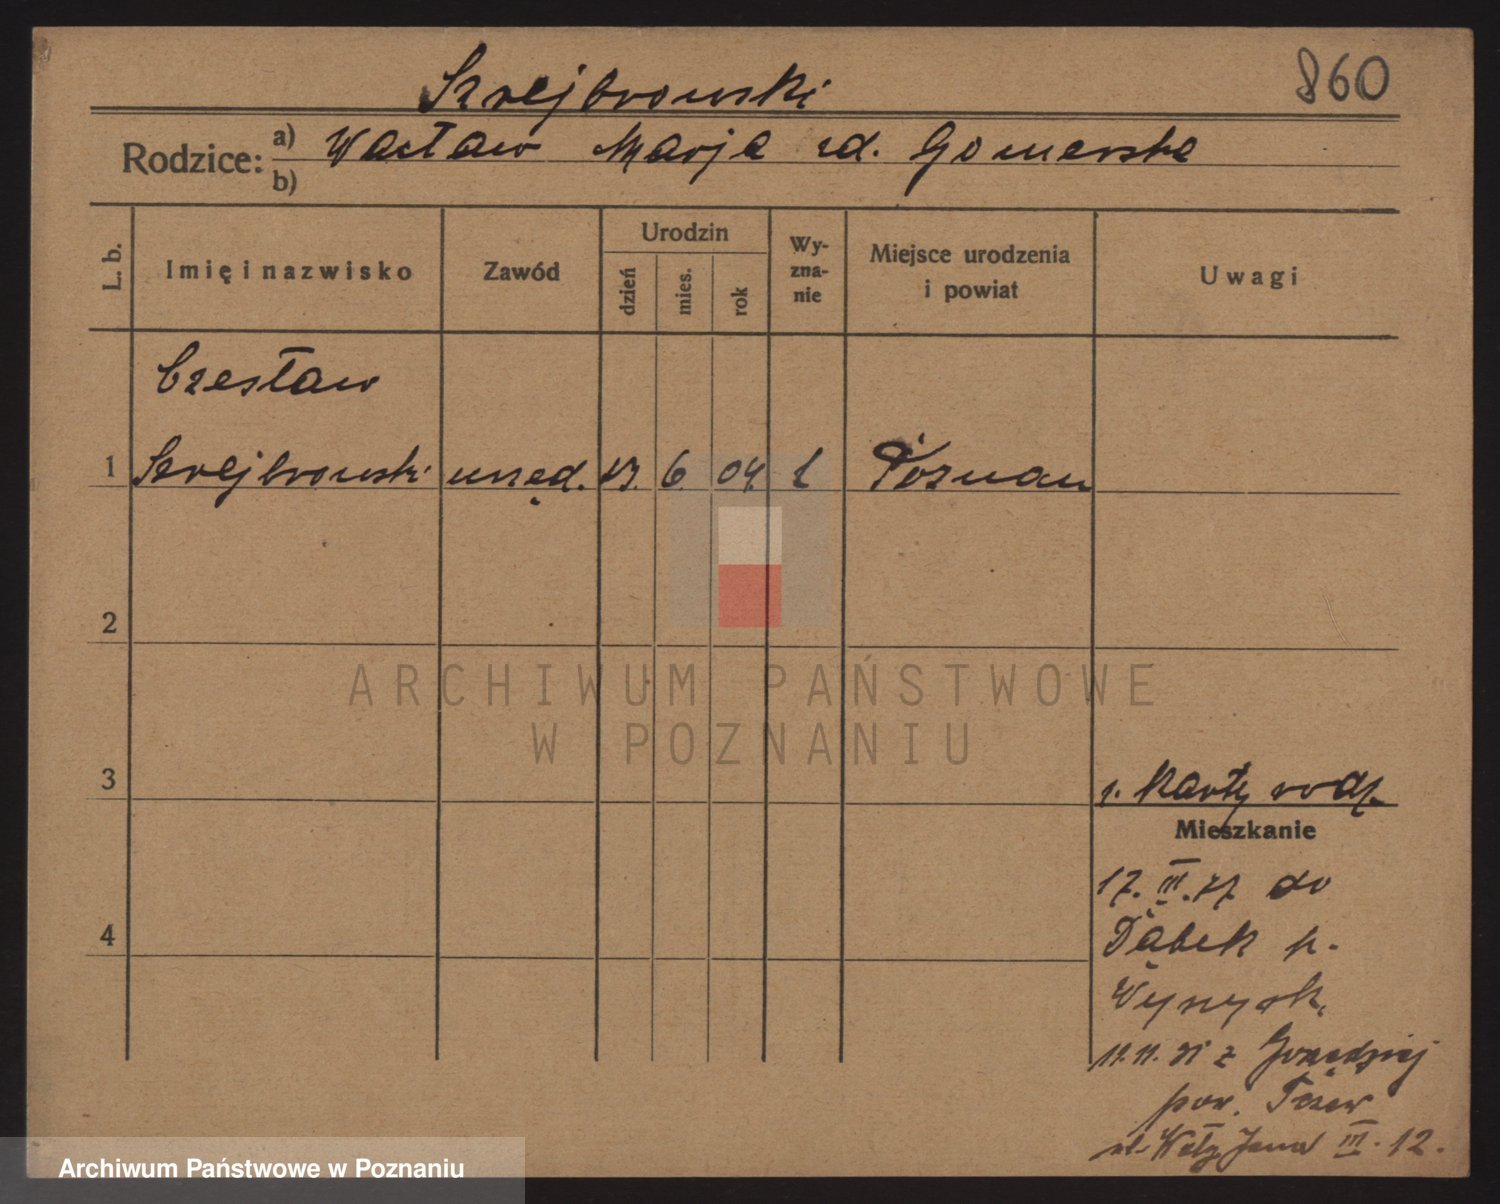 860
Szrejbrowski
Rodzice: a) Wacław Marja zd. Gomerska
b)
L. b.
Imię i nazwisko
Zawód
Urodzin
dzień
mies.
rok
Wy-
zna-
nie
Miejsce urodzenia
i powiat
Uwagi
Czesław
1 Szrejbrowski urzęd. 13. 6. 04. Poznań
2
3
4
z. Karty rodz.
Mieszkanie
17. III. 27. do
Dąbek p.
Wyrzysk.
11. 11. 31 z
pow. Tczew
ul. Wały Jana III. 12.
ARCHIWUM PAŃSTWOWE
W POZNANIU
Archiwum Państwowe w Poznaniu